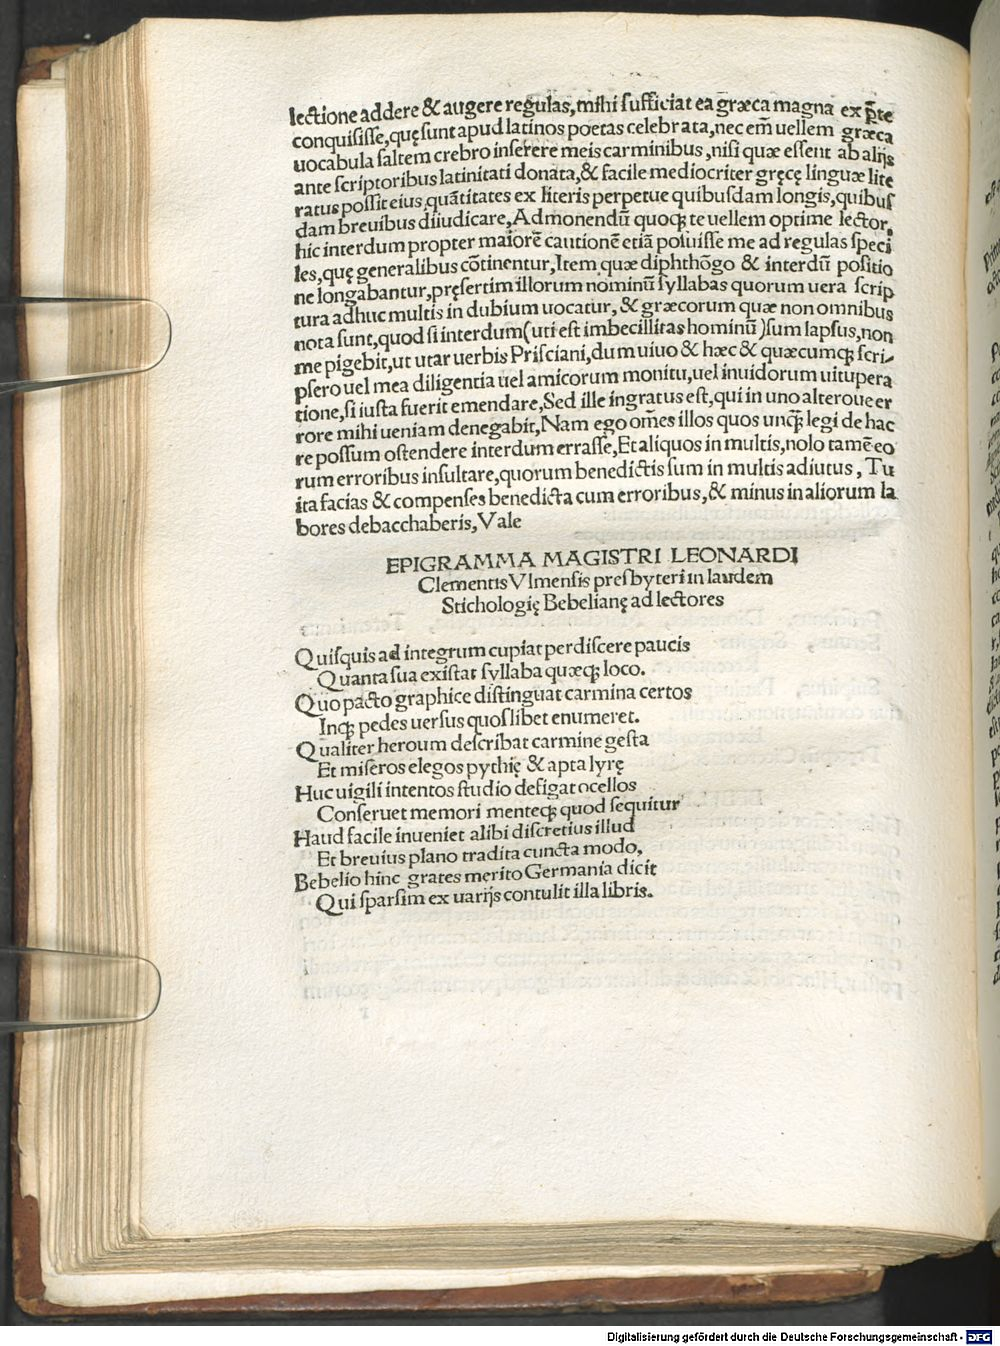 lectione addere & augere regulas, mihi sufficiat ea græca magna ex p̄te
conquisisse, quę sunt apud latinos poetas celebrata, nec em̄ uellem græca
uocabula saltem crebro inserere meis carminibus, nisi quæ essent ab alijs
ante scriptoribus latinitati donata, & facile mediocriter gręcę linguæ lite
ratus possit eius quātitates ex literis perpetue quibusdam longis, quibus
dam breuibus diiudicare, Admonendū quoqꝫ te uellem optime lector,
hic interdum propter maiorē cautionē etiā posuisse me ad regulas speci
les, quę generalibus cōtinentur, Item quæ diphthōgo & interdū positio
ne longabantur, pręsertim illorum nominū syllabas quorum uera scrip
tura adhuc multis in dubium uocatur, & græcorum quæ non omnibus
nota sunt, quod si interdum (uti est imbecillitas hominū) sum lapsus, non
me pigebit, ut utar uerbis Prisciani, dum uiuo & hæc & quæcumqꝫ scri-
psero uel mea diligentia uel amicorum monitu, uel inuidorum uitupera
tione, si iusta fuerit emendare, Sed ille ingratus est, qui in uno alteroue er
rore mihi ueniam denegabit, Nam ego om̄es illos quos unqꝫ legi de hac
re possum ostendere interdum errasse, Et aliquos in multis, nolo tamē eo
rum erroribus insultare, quorum benedictis sum in multis adiutus, Tu
ita facias & compenses benedicta cum erroribus, & minus in aliorum la
bores debacchaberis, Vale
EPIGRAMMA MAGISTRI LEONARDI
Clementis Vlmensis presbyteri in laudem
Stichologię Bebelianę ad lectores
Quisquis ad integrum cupiat perdiscere paucis
Quanta sua existat syllaba quæqꝫ loco.
Quo pacto graphice distinguat carmina certos
Inqꝫ pedes uersus quoslibet enumeret.
Qualiter heroum describat carmine gesta
Et miseros elegos pythię & apta lyrę
Huc uigili intentos studio defigat ocellos
Conseruet memori menteqꝫ quod sequitur
Haud facile inueniet alibi discretius illud
Et breuius plano tradita cuncta modo,
Bebelio hinc grates merito Germania dicit
Qui sparsim ex uarijs contulit illa libris.
Digitalisierung gefördert durch die Deutsche Forschungsgemeinschaft - DFG